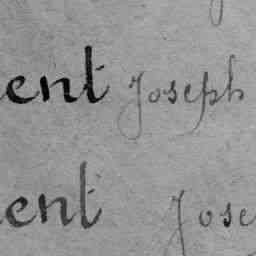 ent Joseph
ent Jose